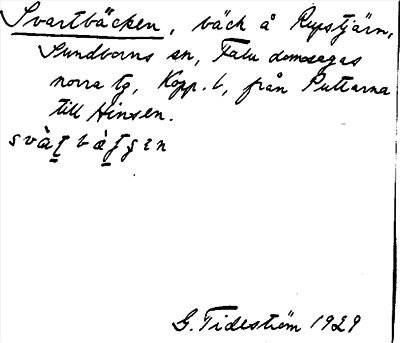 Svartbäcken, bäck å Rupstjärn,
Sundborns sn, Falu domsagas
norra tg, Kopp. l, från Puttarna
till Hinsen.
G. Tideström 1929